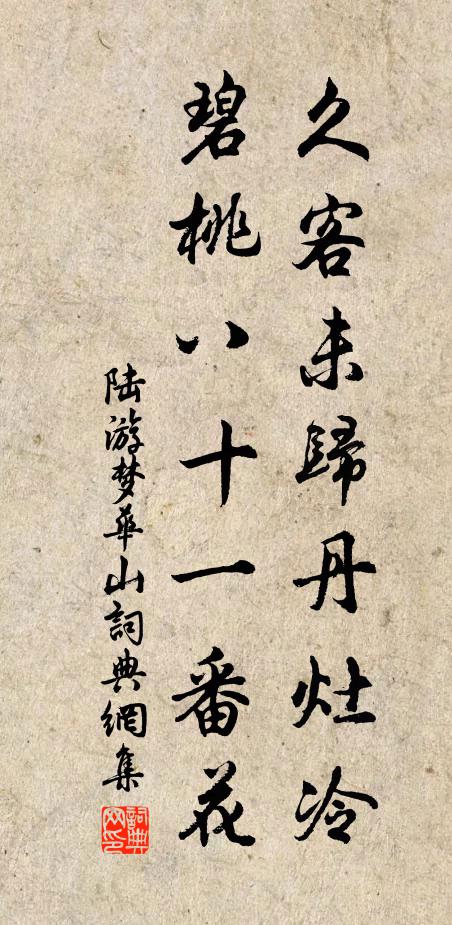 久客未歸丹灶冷
碧桃八十一番花
陆游梦華山詞典網集
詞典网印